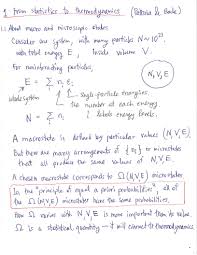 1 From statistics to thermodynamics (Pathria & Beale)
1.1 About macro and microscopic states
Consider one system, with many particles N ~ 10²³,
with total energy E, inside volume V.
For noninteracting particles,
E = Σ nᵢ εᵢ
N,V,E
whole system
single-particle energies,
the number at each energy
N = Σ nᵢ
i labels energy levels.
A macrostate is defined by particular values (N,V,E)
But there are many arrangements of {nᵢ} or microstates
that all produce the same values of N,V,E.
A chosen macrostate corresponds to Ω(N,V,E) microstates
In the "principle of equal a priori probabilities", all of
the Ω(N,V,E) microstates have the same probabilities.
How Ω varies with N,V,E is more important than its value.
Ω is a statistical quantity — it will connect to thermodynamics